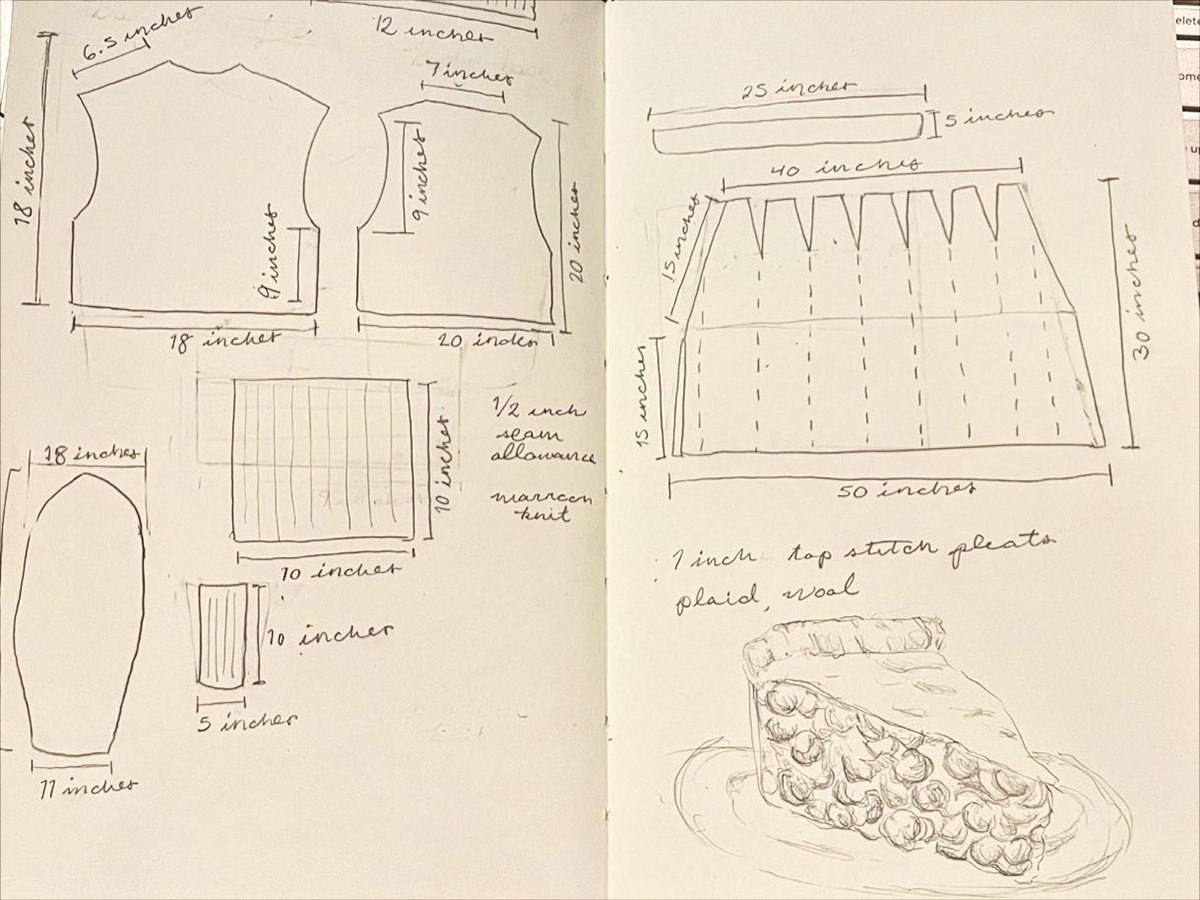 12 inches
6.5 inches
18 inches
9 inches
18 inches
7 inches
9 inches
20 inches
20 inches
10 inches
10 inches
1/2 inch
seam
allowance
marroon
knit
18 inches
11 inches
10 inches
5 inches
25 inches
5 inches
40 inches
15 inches
15 inches
30 inches
50 inches
1 inch top stitch pleats
plaid, wool